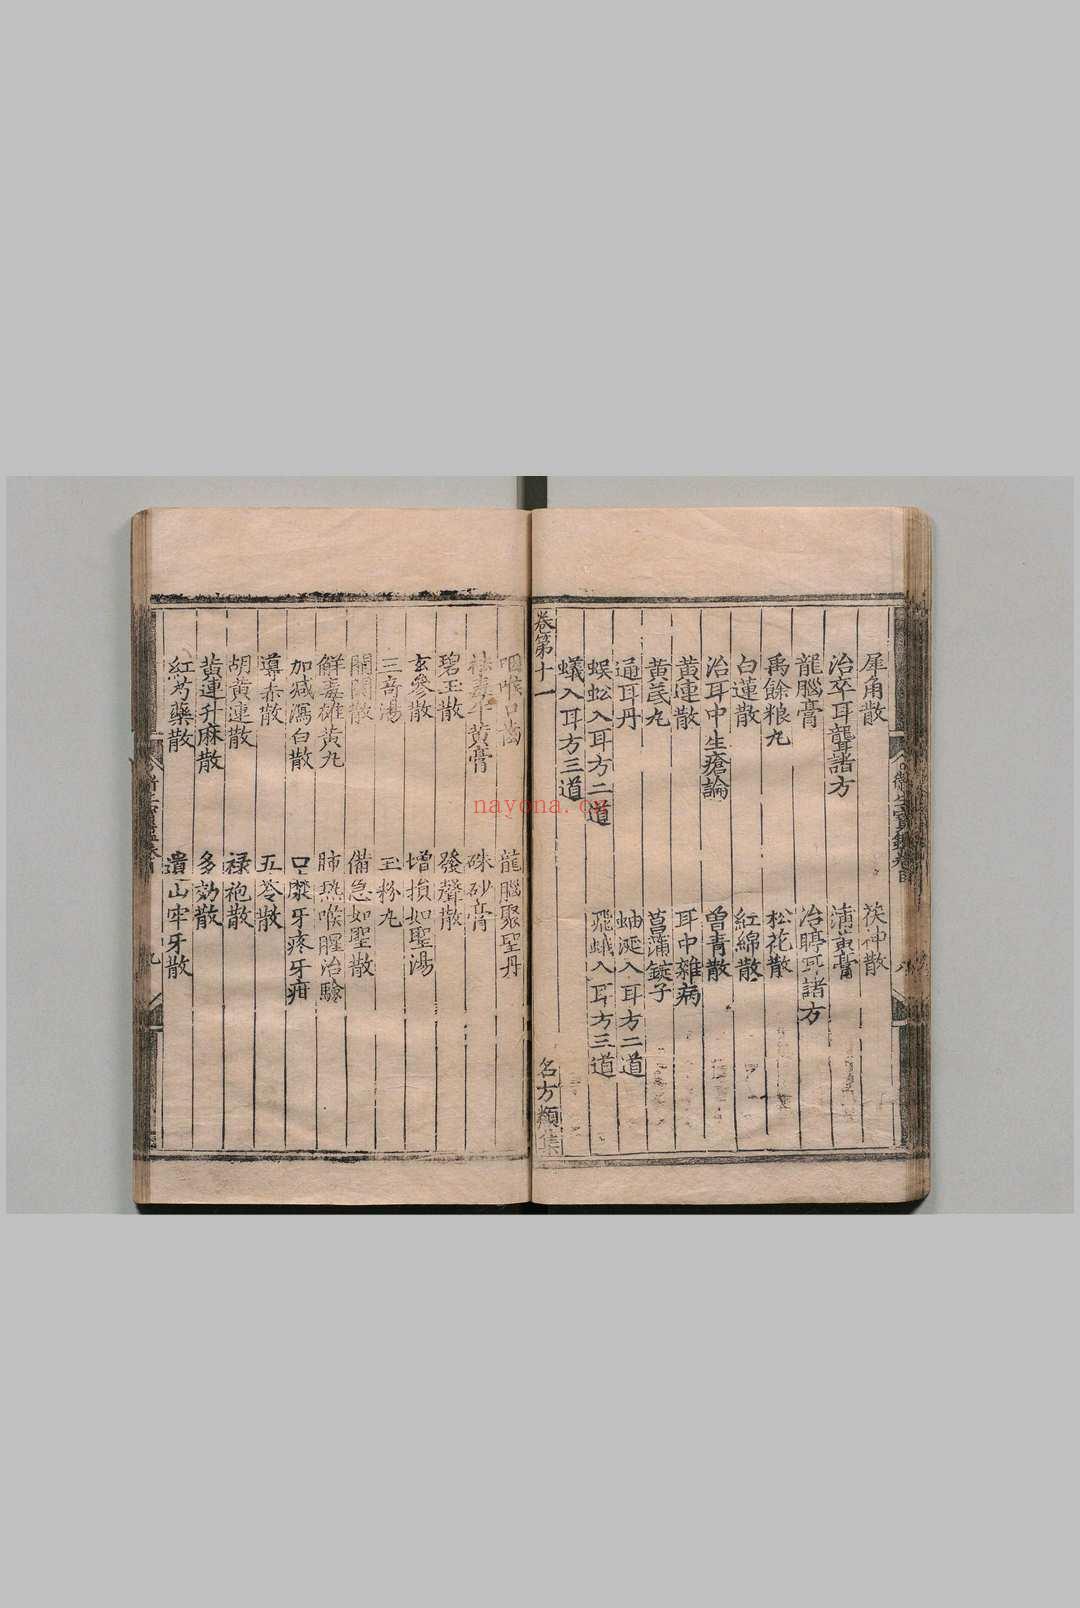 犀角散 茯神散
治卒耳聾諸方 蒲黃膏
龍腦膏 治聤耳諸方
禹餘粮丸 松花散
白蓮散 紅綿散
治耳中生瘡論 曾青散
黃連散 耳中雜病
黃芪丸 菖蒲鋌子
通耳丹 蚰蜒入耳方二道
蜈蚣入耳方二道 飛蛾入耳方三道
蟻入耳方三道
卷第十一 名方類集
咽喉口齒 龍腦聚聖丹
牛黃膏 硃砂膏
碧玉散 發聲散
玄參散 增損如聖湯
三奇湯 玉粉丸
開關散 備急如聖散
解毒雄黃丸 肺熱喉腥治驗
加減瀉白散 口糜牙疼牙疳
導赤散 五苓散
胡黃連散 祿袍散
黃連升麻散 多効散
紅芍藥散 遺山牢牙散
九
nayona.cn